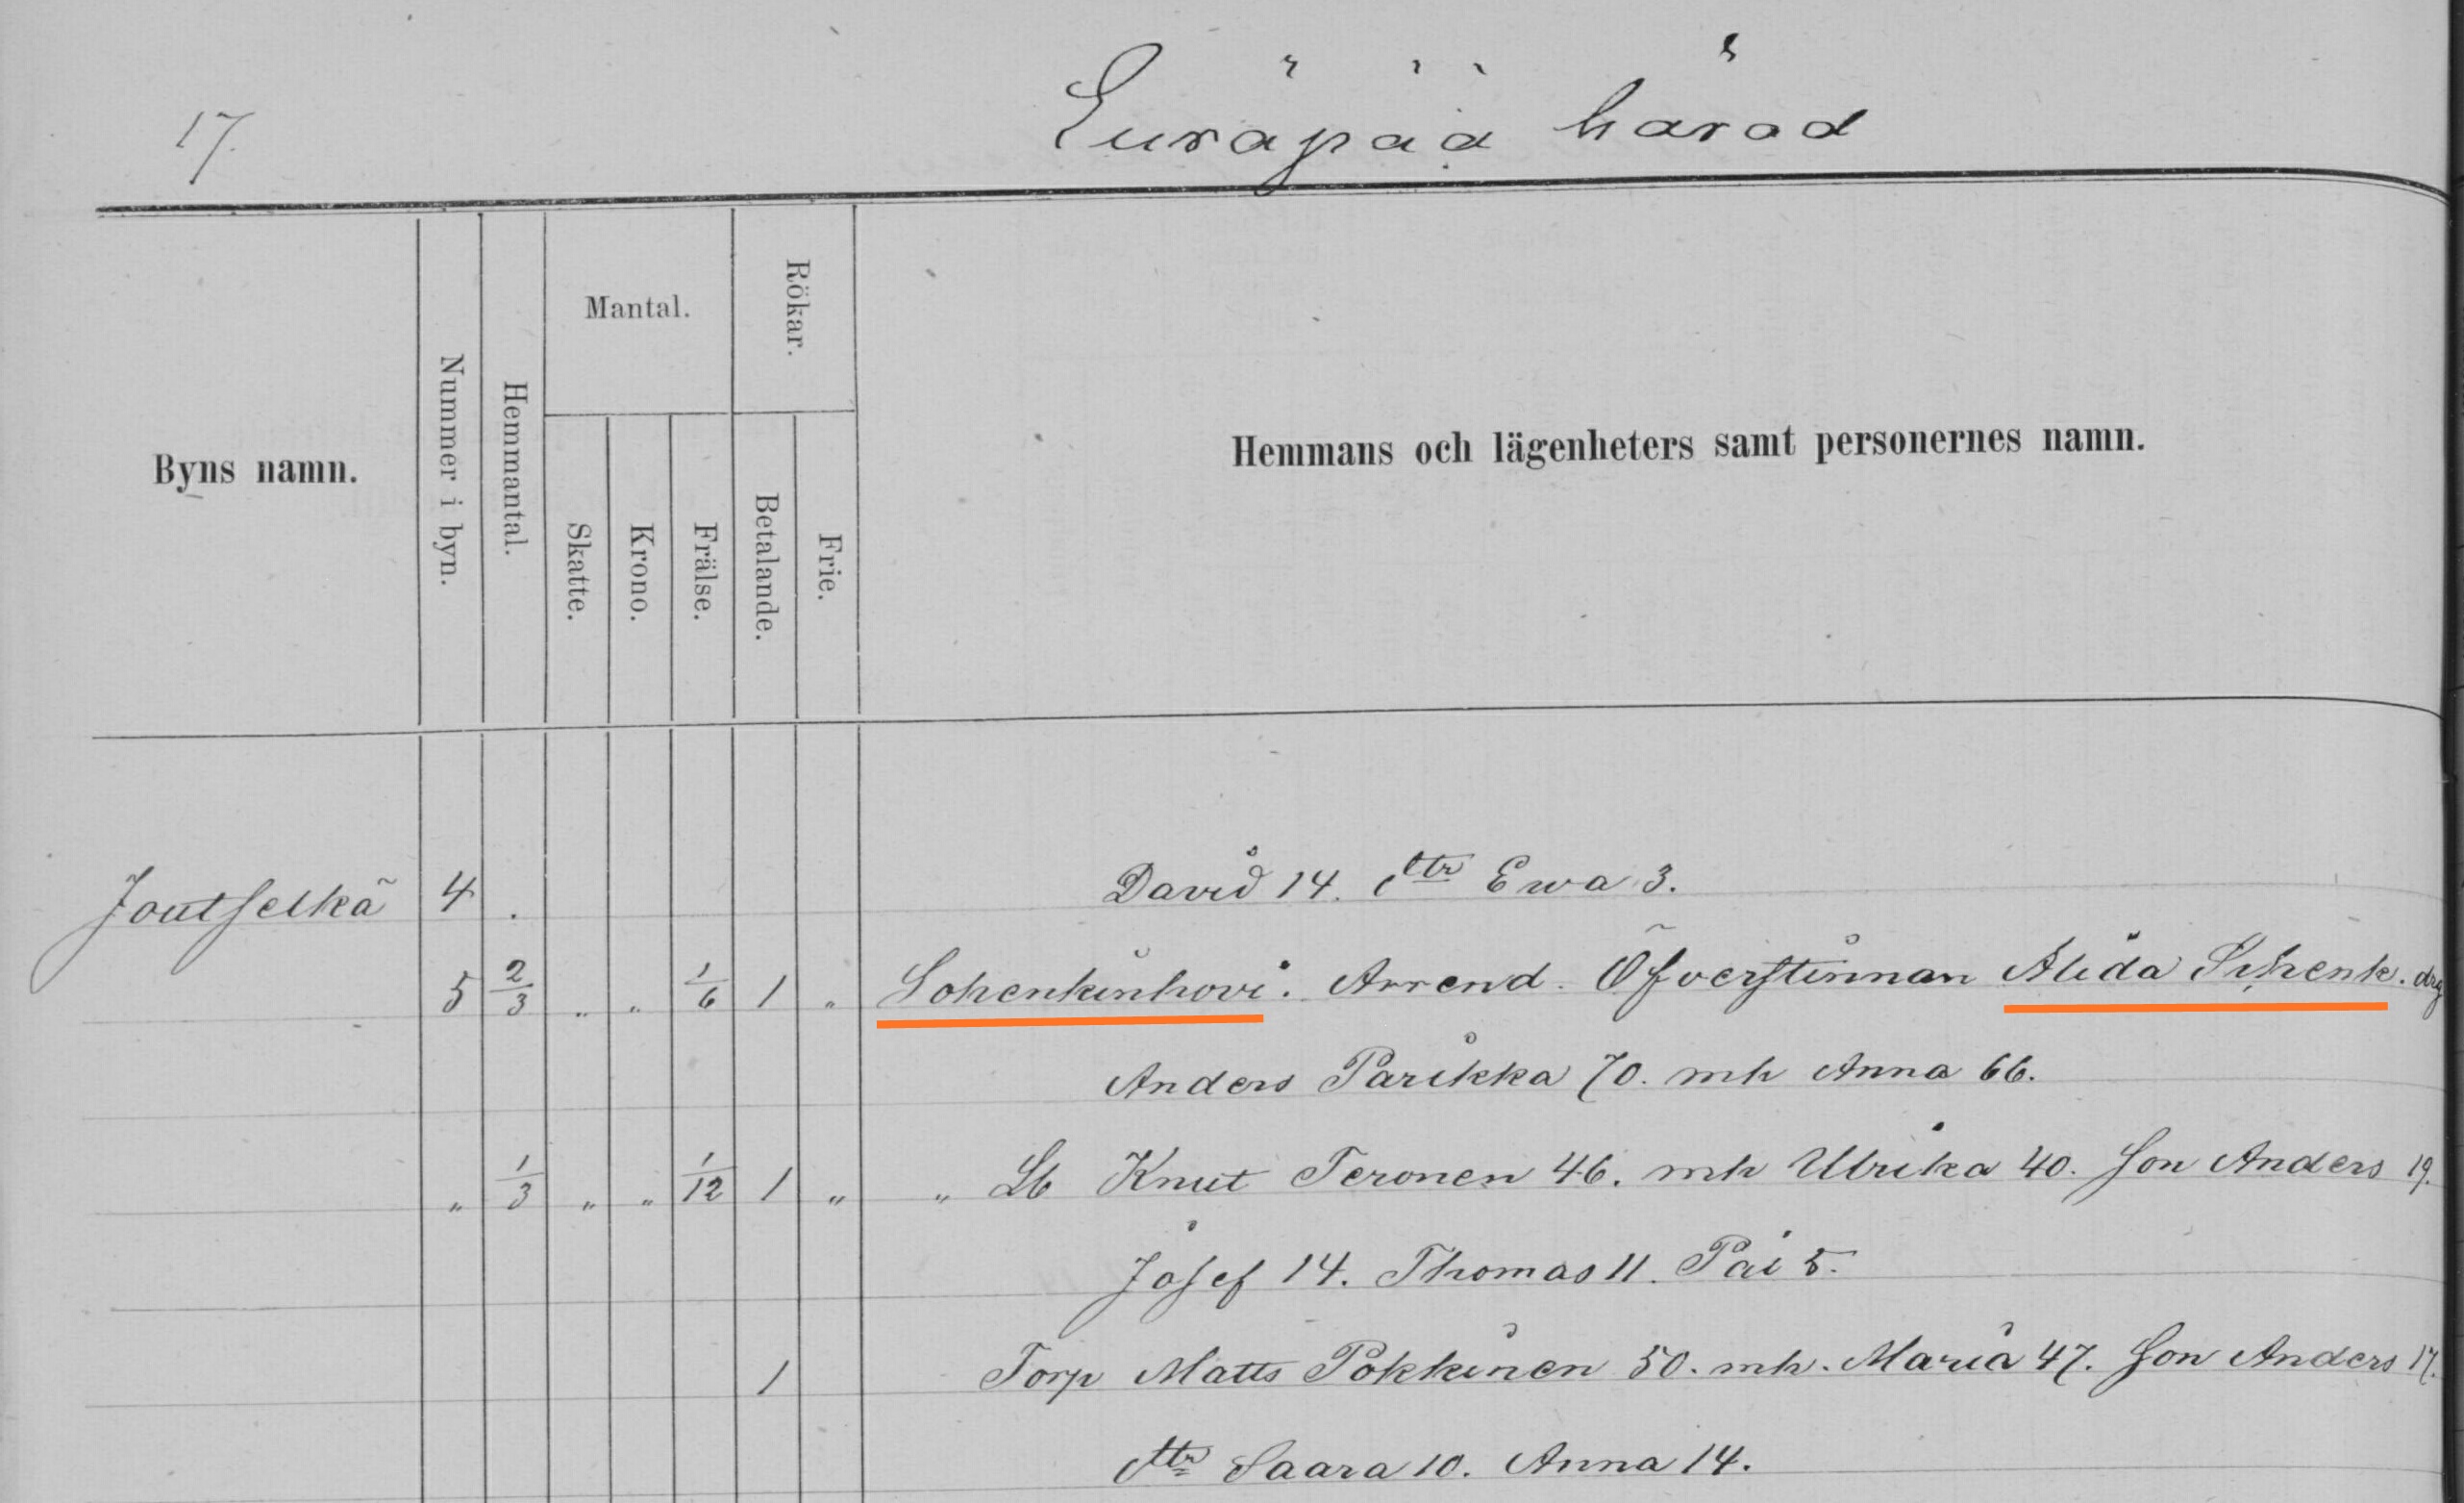 17.
Euräpää härad
Byns namn.
Nummer i byn.
Hemmantal.
Mantal.
Skatte.
Krono.
Frälse.
Rökar.
Betalande.
Frie.
Hemmans och lägenheters samt personernes namn.
Joutselkä 4 . David 14. dtr Ewa 3.
5 2/3 „ „ 1/6 1 „ Sohenkinhovi. Arrend. Öfverstinnan Alida Schenk. drg
Anders Parikka 70. mh Anna 66.
„ 1/3 „ „ 1/12 1 „ „ Lb Knut Teronen 46. mh Ulrika 40. Son Anders 19.
Josef 14. Thomas 11. Pai 5.
1 Torp Matts Pokkinen 50. mh. Maria 47. Son Anders 17.
dtr Saara 10. Anna 14.